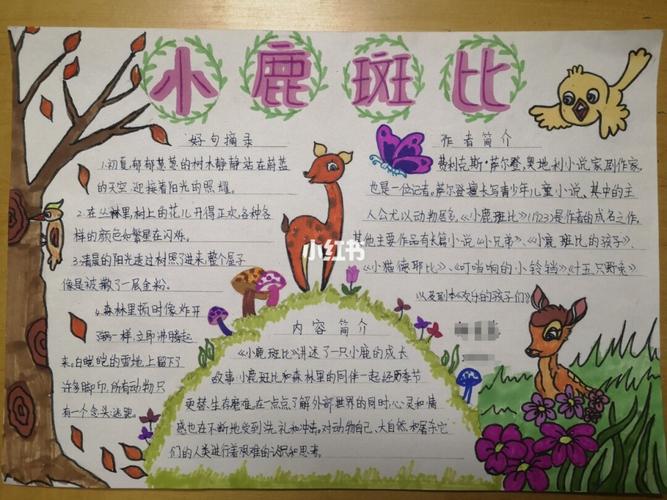 小鹿斑比
好句摘录
1.初夏,郁郁葱葱的树木静静站在蔚蓝
的天空,迎接着阳光的照耀。
2.在丛林里,树上的花儿开得正欢,各种各
样的颜色如繁星在闪烁。
3.清晨的阳光透过树照了进来,整个屋子
像是被撒了一层金粉。
4.森林里顿时像炸开
了锅一样,立即沸腾起
来。白皑皑的雪地上留下了
许多脚印,所有动物只
有一个念头:逃跑。
作者简介
费利克斯·萨尔登,奥地利小说家剧作家,
也是一位记者。萨尔登擅长写青少年儿童小说、其中的主
人公尤以动物居多。《小鹿斑比》(1923)是作者的成名之作,
其他主要作品有长篇小说《小兄弟》、《小鹿斑比的孩子》、
《小猫德耶比》、《叮当响的小铃铛》《十五只野兔》
以及剧本《欢乐的孩子们》
小红书
内容简介
《小鹿斑比》讲述了一只小鹿的成长
故事,小鹿斑比和森林里的同伴一起经历季节
更替、生存磨难,在一点点了解外部世界的同时,心灵和情
感也在不断地受到洗礼和冲击,对动物自己、大自然,和屠杀它
们的人类进行着艰难的认识和思考。